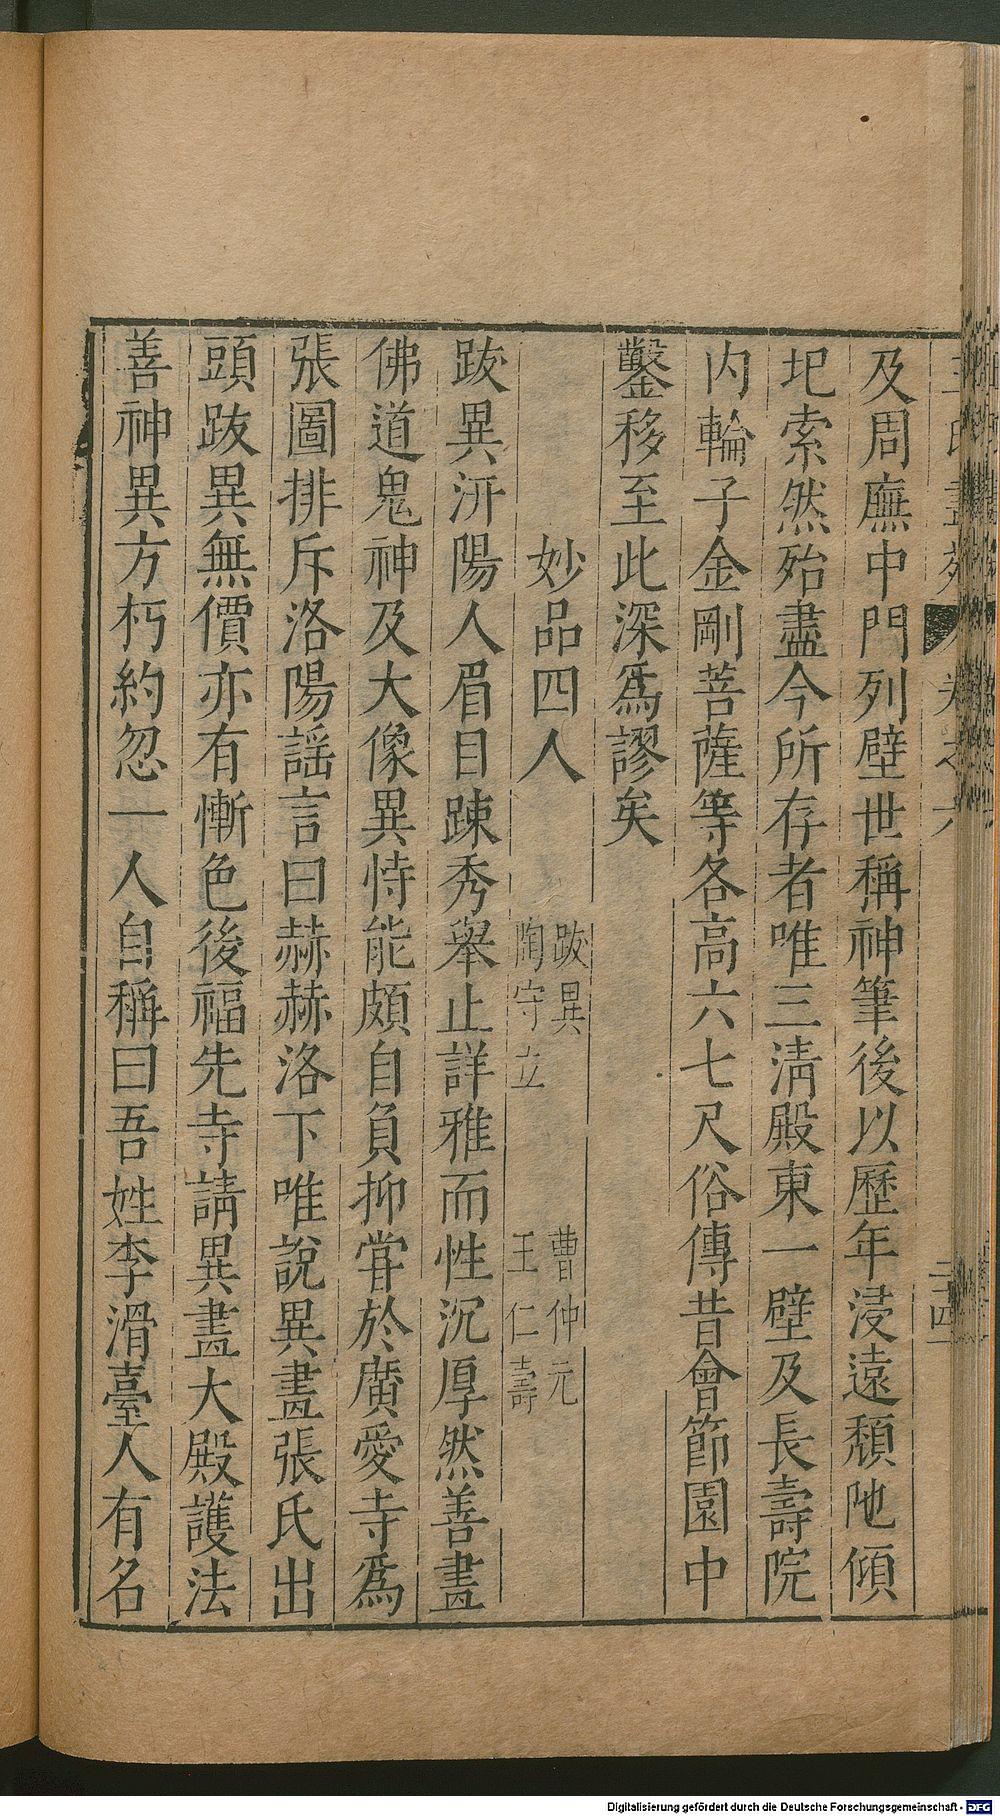 王氏畫苑 卷之六 二十四
及周廡中門列壁世稱神筆後以歷年浸遠頹阤傾
圯索然殆盡今所存者唯三淸殿東一壁及長壽院
内輪子金剛菩薩等各高六七尺俗傳昔會節園中
鑿移至此深爲謬矣
妙品四人 跋異 曹仲元
陶守立 王仁壽
跋異汧陽人眉目踈秀舉止詳雅而性沉厚然善畫
佛道鬼神及大像異恃能頗自負抑甞於廣愛寺爲
張圖排斥洛陽謡言曰赫赫洛下唯說異畫張氏出
頭跋異無價亦有慚色後福先寺請異畫大殿護法
善神異方朽約忽一人自稱曰吾姓李滑臺人有名
Digitalisierung gefördert durch die Deutsche Forschungsgemeinschaft - DFG